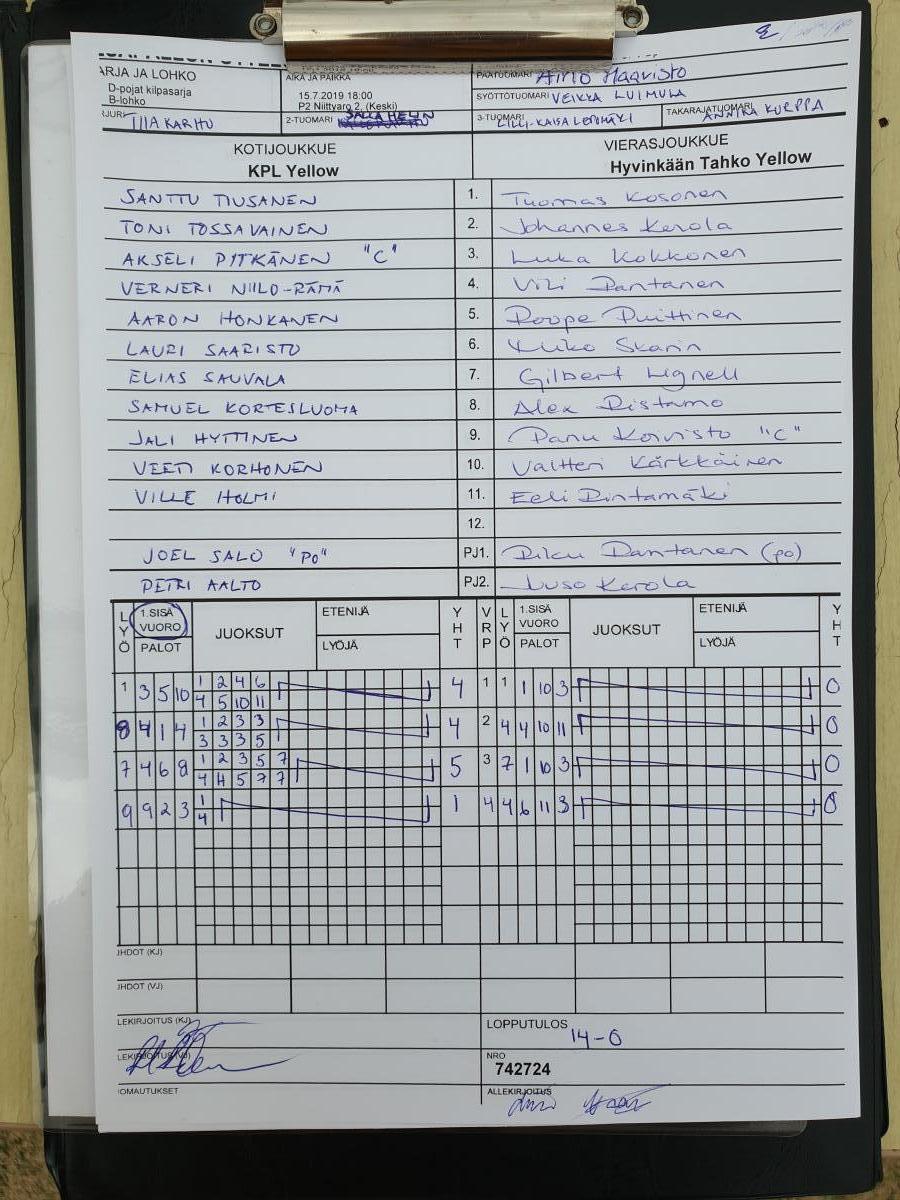 ARJA JA LOHKO
D-pojat kilpasarja
B-lohko
AIKA JA PAIKKA
15.7.2019 18:00
P2 Niittyaro 2, (Keski)
PÄÄTUOMARI
SYÖTTÖTUOMARI VEIKKA LUIMULA
JURI TIIA KARHU
2-TUOMARI SALLA HELIN
3-TUOMARI
TAKARAJATUOMARI ANNIKA KURPPA
KOTIJOUKKUE
KPL Yellow
VIERASJOUKKUE
Hyvinkään Tahko Yellow
SANTTU TIUSANEN 1. Tuomas Kosonen
TONI TOSSAVAINEN 2. Johannes Kerola
AKSELI PITKÄNEN "C" 3. Luka Kokkonen
VERNERI NIILO-RÄMÄ 4. Vili Rantanen
AARON HONKANEN 5. Roope Puittinen
LAURI SAARISTO 6. Skarin
ELIAS SAUVALA 7. Gilbert Lignell
SAMUEL KORTESLUOMA 8. Alex Ristamo
JALI HYTTINEN 9. Panu Koivisto "C"
VEETI KORHONEN 10. Valtteri Kärkkäinen
VILLE HOLMI 11. Eeli Rintamäki
12.
JOEL SALO "PO" PJ1. Riku Rantanen (po)
PETRI AALTO PJ2. Juuso Kerola
LYÖ 1.SISÄ VUORO PALOT JUOKSUT ETENIJÄ LYÖJÄ YHT VRP LYÖ 1.SISÄ VUORO PALOT JUOKSUT ETENIJÄ LYÖJÄ YHT
1 3 5 10 1 2 4 6 4 1 1 1 10 3 0
4 5 10 11
8 4 1 4 1 2 3 3 4 2 4 4 10 11 0
3 3 3 5
7 4 6 8 1 2 3 5 7 5 3 7 1 10 3 0
4 4 5 7 7
9 9 2 3 1 1 4 4 6 11 3 0
4
JHDOT (KJ)
JHDOT (VJ)
LEKIRJOITUS (KJ)
LOPPUTULOS
14-0
LEKIRJOITUS (VJ)
NRO
742724
IOMAUTUKSET
ALLEKIRJOITUS